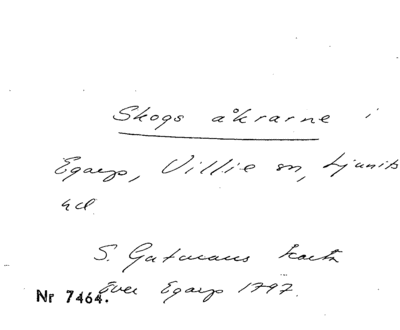 Skogs åkrarne i
Egarp, Villie sn, Ljunits
hd.
S. Gutmans karta
över Egarp 1797.
Nr 7464.